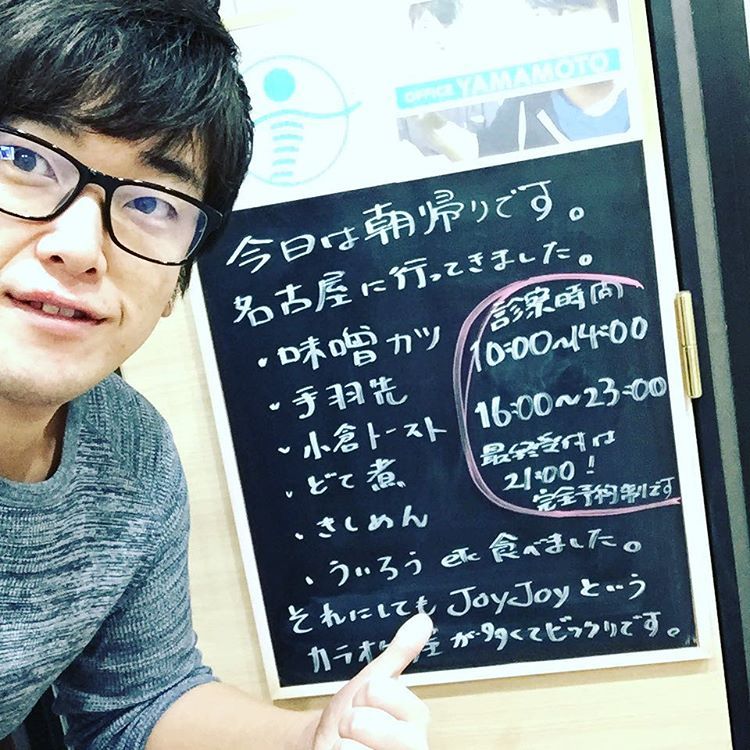 OFFICE YAMAMOTO
今日は朝帰りです。
名古屋に行ってきました。
・味噌カツ
・手羽先
・小倉トースト
・どて煮
・きしめん
・ういろう etc 食べました。
それにしても JoyJoyという
カラオケ屋が多くてビックリです。
診察時間
10:00〜14:00
16:00〜23:00
最終受付は
21:00!
完全予約制です